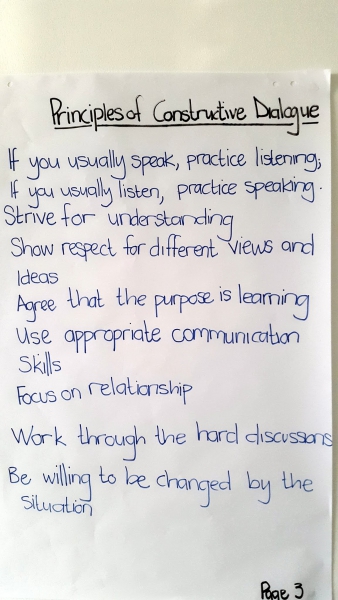 Principles of Constructive Dialogue
If you usually speak, practice listening;
If you usually listen, practice speaking.
Strive for understanding
Show respect for different views and
Ideas
Agree that the purpose is learning
Use appropriate communication
Skills
Focus on relationship
Work through the hard discussions
Be willing to be changed by the
Situation
Page 3